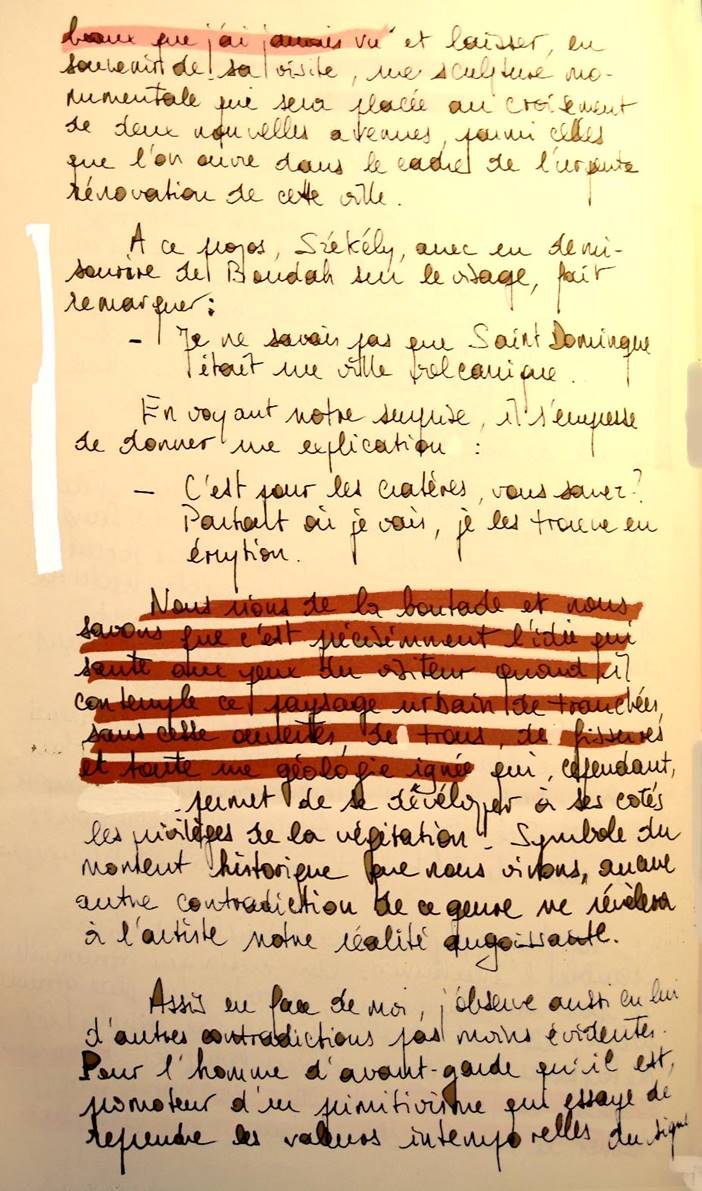 beaux que j'ai jamais vu" et laisser, en
souvenir de sa visite, une sculpture mo-
numentale qui sera placée au croisement
de deux nouvelles avenues, parmi celles
que l'on ouvre dans le cadre de l'urgente
rénovation de cette ville.
A ce propos, Székély, avec un demi-
sourire de Boudah sur le visage, fait
remarquer:
- Je ne savais pas que Saint Domingue
était une ville volcanique.
En voyant notre surprise, il s'empresse
de donner une explication :
- C'est pour les cratères, vous savez?
Partout où je vais, je les trouve en
éruption.
Nous rions de la boutade et nous
savons que c'est précisémment l'idée qui
saute aux yeux du visiteur quand il
contemple ce paysage urbain de tranchées
sans cesse ouvertes de trous, de fissures
et toute une géologie ignée qui, cependant,
permet de se dévélopper à ses cotés
les privilèges de la végétation. Symbole du
moment historique que nous vivons, aucune
autre contradiction de ce genre ne révèlera
à l'artiste notre réalité angoissante.
Assis en face de moi, j'observe aussi en lui
d'autres contradictions pas moins évidentes.
Pour l'homme d'avant-garde qu'il est,
promoteur d'un primitivisme qui essaye de
reprendre les valeurs intemporelles du signe